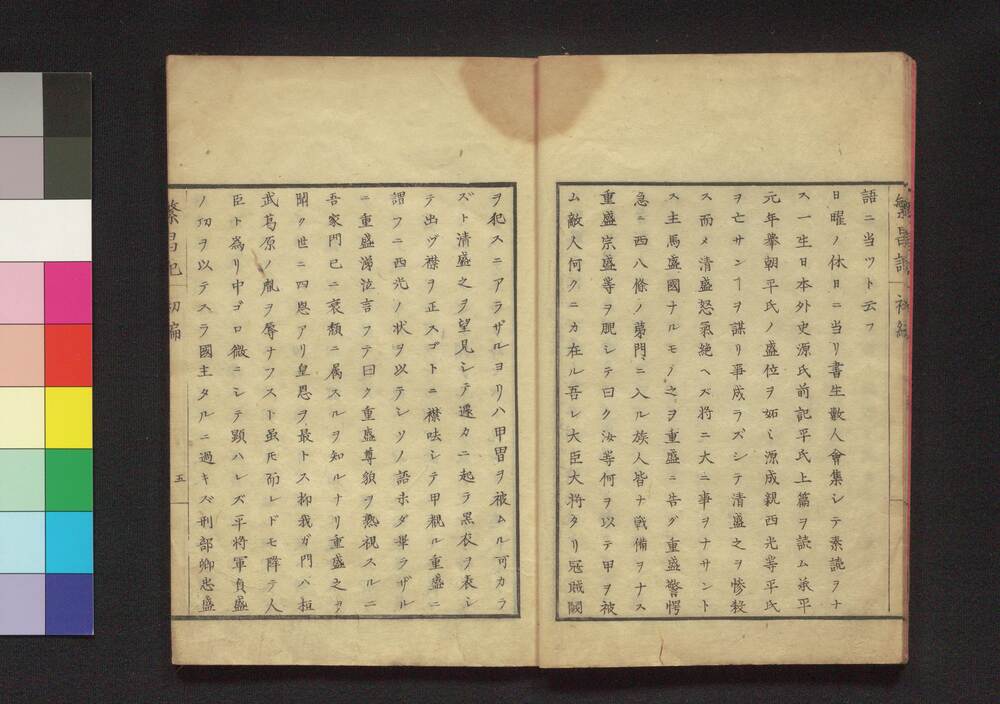 繁昌記 初編
語ニ当ツト云フ
日曜ノ休日ニ当リ書生數人會集シテ素読ヲナ
ス一生日本外史源氏前記平氏上篇ヲ読ム承平
元年擧朝平氏ノ盛位ヲ妬ミ源成親西光等平氏
ヲ亡サンヿヲ謀リ事成ラズシテ清盛之ヲ惨殺
ス而メ清盛怒氣絶ヘズ将ニ大ニ事ヲナサント
ス主馬盛國ナルモノ之ヲ重盛ニ告グ重盛警愕
急ニ西八條ノ第門ニ入ル族人皆ナ戦備ヲナス
重盛宗盛等ヲ睨シテ曰ク汝等何ヲ以テ甲ヲ被
ム敵人何クニカ在ル吾レ大臣大将タリ冦賊闕
ヲ犯スニアラザルヨリハ甲冑ヲ被ムル可カラ
ズト清盛之ヲ望見シテ遽カニ起ラ黒衣ヲ表シ
テ出ヅ襟ヲ正スゴトニ襟呿シテ甲覩ル重盛ニ
謂フニ西光ノ状ヲ以テシソノ語未ダ畢ラザル
ニ重盛涕泣言フテ曰ク重盛尊貌ヲ熟視スルニ
吾家門已ニ衰頽ニ属スルヲ知ルナリ重盛之ヲ
聞ク世ニ四恩アリ皇恩ヲ最トス抑我ガ門ハ桓
武葛原ノ胤ヲ辱ナフスト虽𪜈而レドモ降テ人
臣ト為リ中ゴロ微ニシテ顕ハレズ平将軍貞盛
ノ功ヲ以テスラ國主タルニ過キズ刑部卿忠盛
繁昌記 初編 五